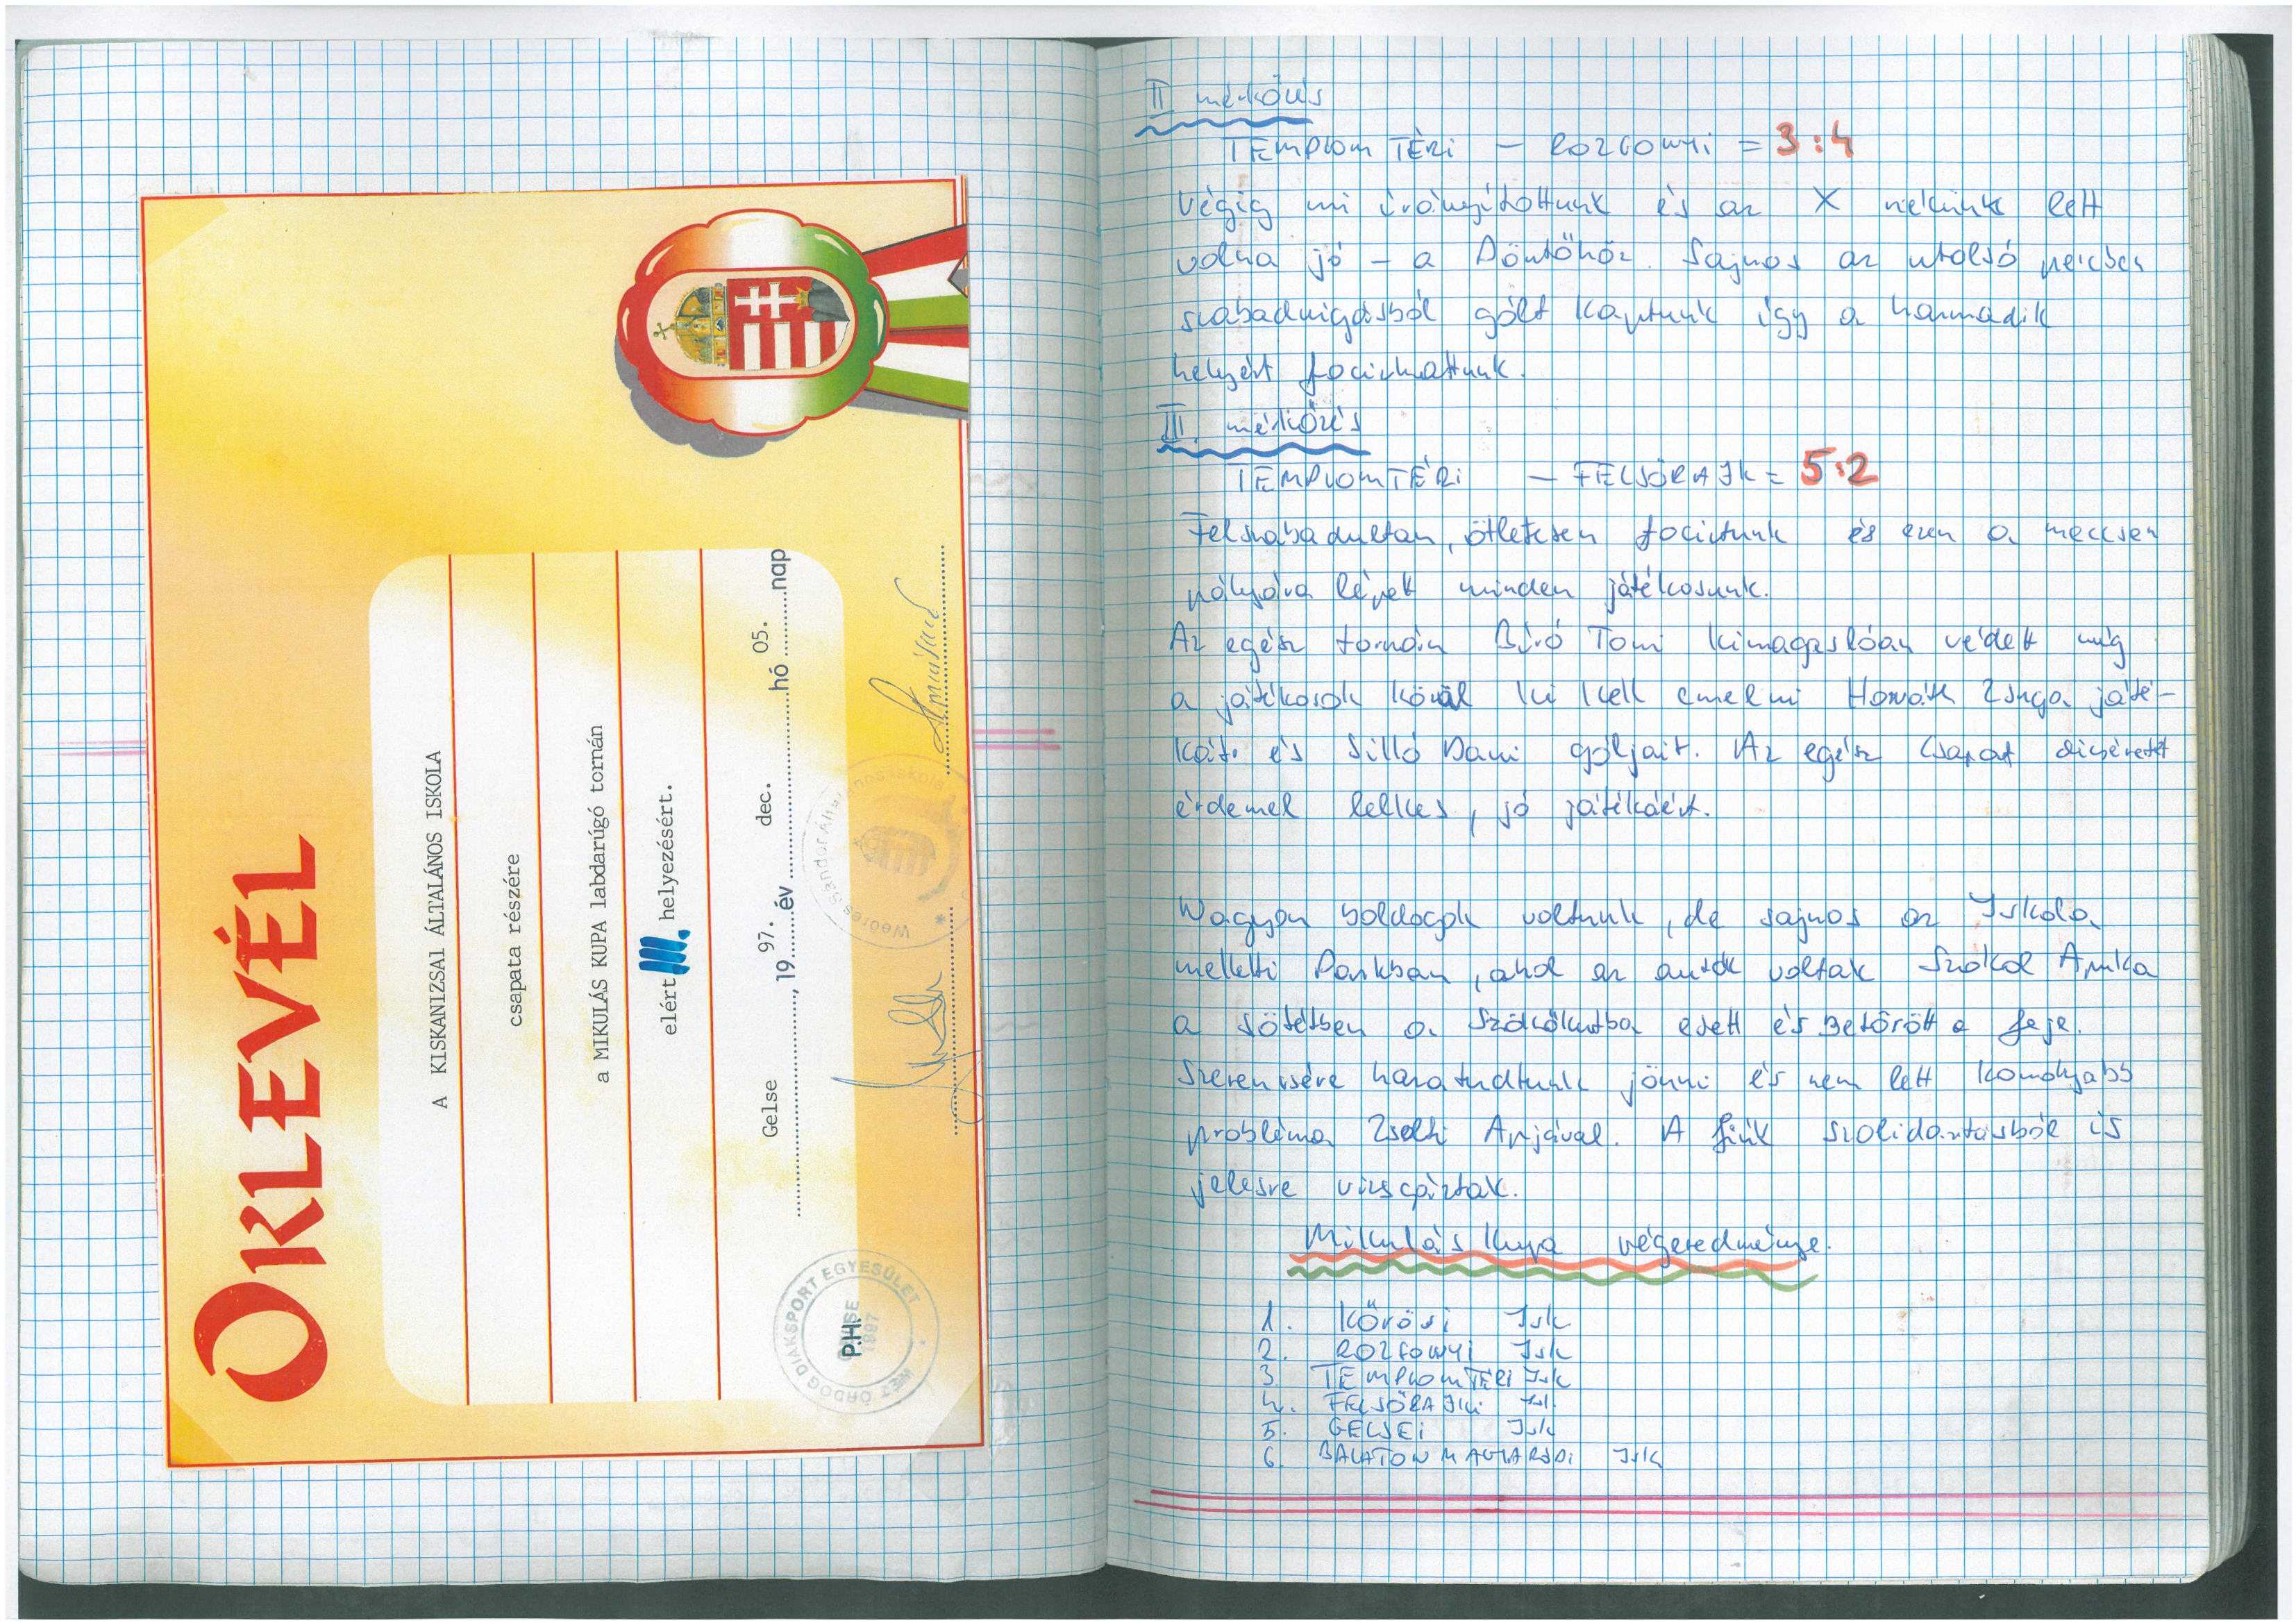 OKLEVÉL
A KISKANIZSAI ÁLTALÁNOS ISKOLA
csapata részére
a MIKULÁS KUPA labdarúgó tornán
elért III. helyezésért.
Gelse, 1997. év dec. hó 05. nap
P.H.
ÖRDÖG DIÁKSPORT EGYESÜLET
GELSE
1997
Weöres Sándor Ált
II mérkőzés
TEMPLOM TÉRI – ROZGONYI = 3:4
Végig mi irányítottunk és az X nekünk lett
volna jó – a Döntőhöz. Sajnos az utolsó percben
szabadrúgásból gólt kaptunk így a harmadik
helyért focizhattunk.
III. mérkőzés
TEMPLOMTÉRI – FELSŐRAJK = 5:2
Felszabadultan, ötletesen fociztunk és ezen a meccsen
pályára lépett minden játékosunk.
Az egész tornán Bíró Tomi kimagaslóan védett míg
a játékosok közül ki kell emelni Horváth Zsuga játé-
kát és Silló Dani góljait. Az egész csapat dicséretet
érdemel lelkes, jó játékáért.
Nagyon boldogok voltunk, de sajnos az Iskola
melletti Parkban, ahol az autók voltak Szokol Apuka
a sötétben a szökőkútba esett és Betörött a feje.
Szerencsére hazatudtunk jönni és nem lett komolyabb
probléma Zsolti Apjával. A fiúk szolidaritásból is
jelesre vizsgáztak.
Mikulás Kupa végeredménye.
1. Kőrösi Isk
2. ROZGONYI Isk
3. TEMPLOMTÉRI Isk
4. FELSŐRAJKI Isk.
5. GELSEI Isk
6. BALATONMAGYARÓDI Isk